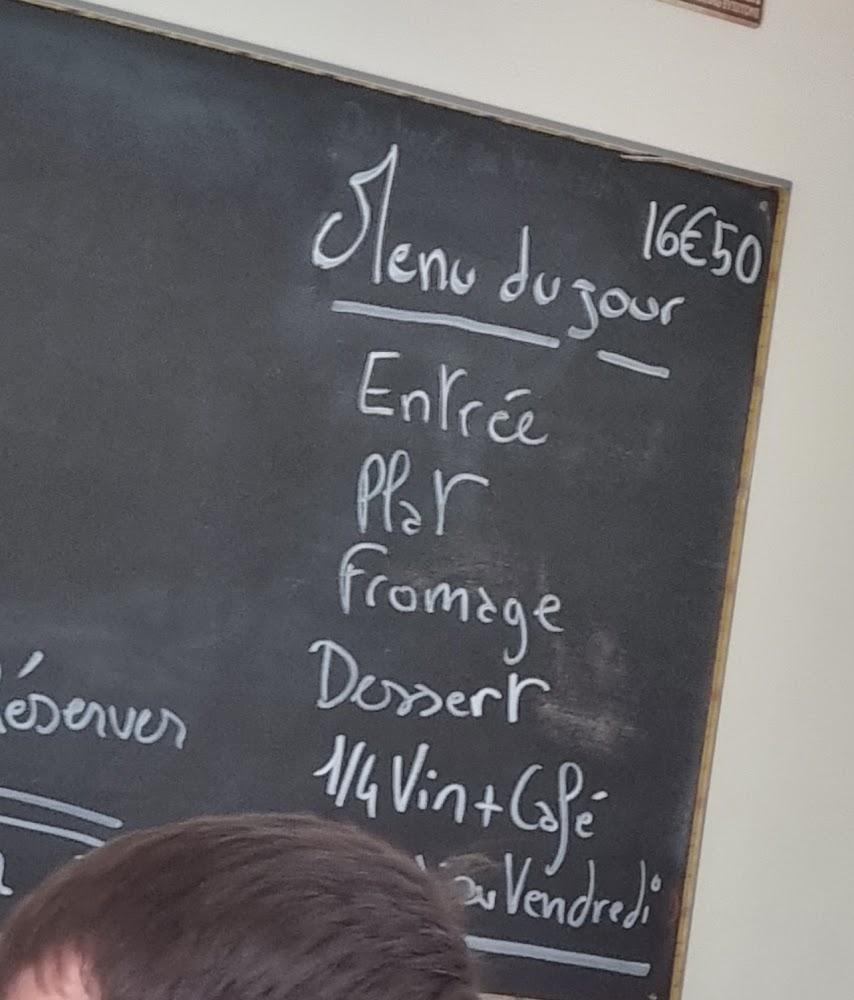 16€50
Menu du jour
Entrée
Plat
Fromage
Dessert
1/4 Vin + Café
au Vendredi
Réserver